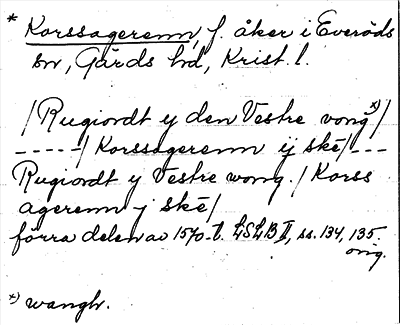 * Korssagerenn, f. åker i Everöds
sn, Gärds hd, Krist. l.
/Rugiordt y den Vestre vong x)/
-----/ Korssagerenn ij ske/---
Rugiordt y Vestre wong. / Korss
agerenn y ske/
förra delen av 1570-t. LSLB II, ss. 134, 135.
orig.
x) wangh.